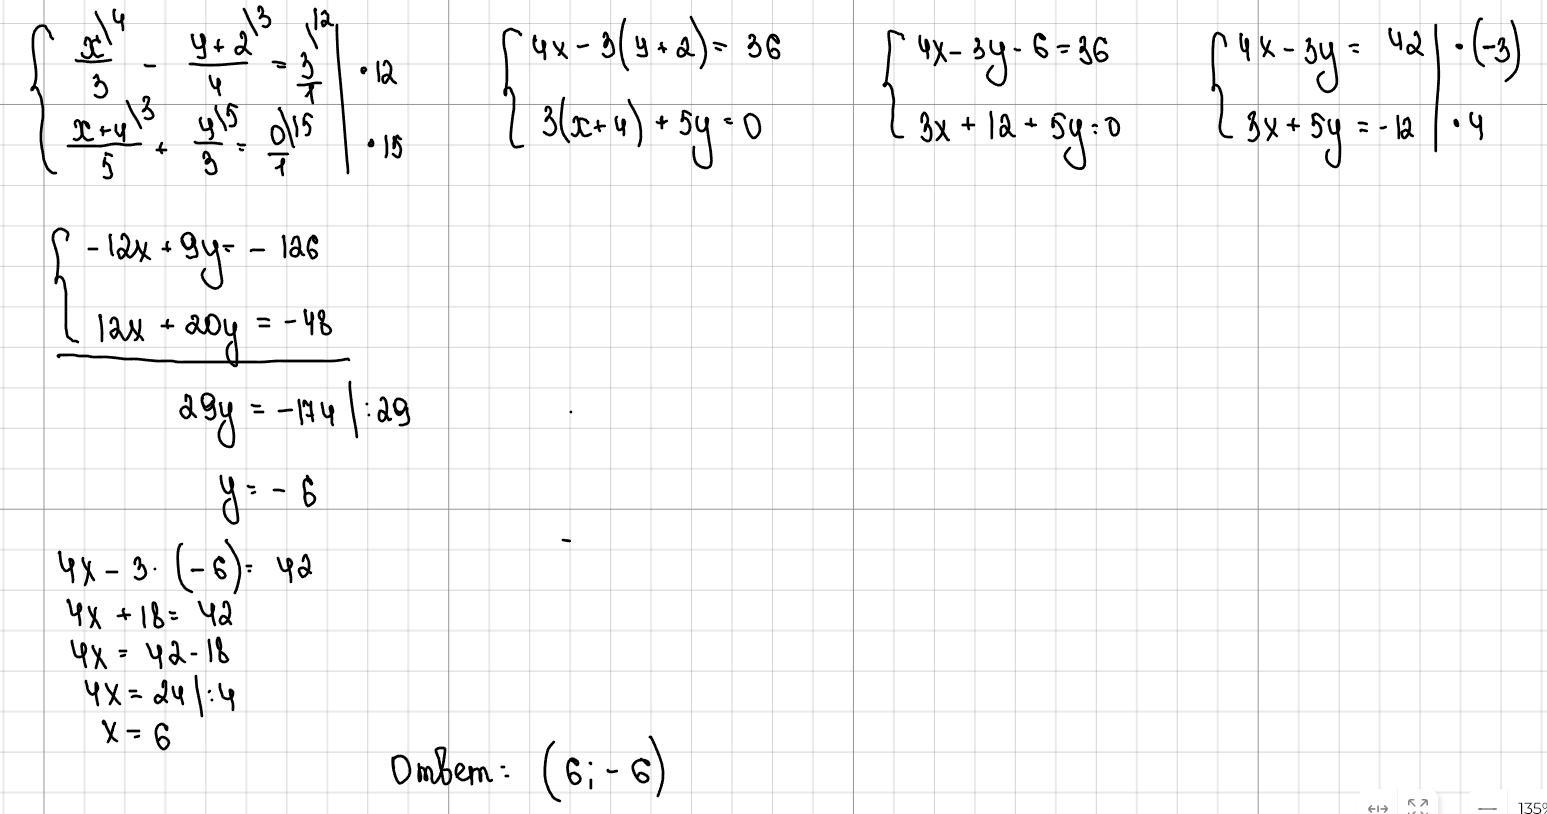 { x\4/3 - y+2\3/4 = 3\12/1 | · 12
{ x+4\3/5 + y\5/3 = 0\15/1 | · 15
{ 4x - 3(y+2) = 36
{ 3(x+4) + 5y = 0
{ 4x - 3y - 6 = 36
{ 3x + 12 + 5y = 0
{ 4x - 3y = 42 | · (-3)
{ 3x + 5y = -12 | · 4
{ -12x + 9y = - 126
{ 12x + 20y = -48
29y = -174 | : 29
y = - 6
4x - 3 · (-6) = 42
4x + 18 = 42
4x = 42 - 18
4x = 24 | : 4
x = 6
Ответ: (6; - 6)
135%